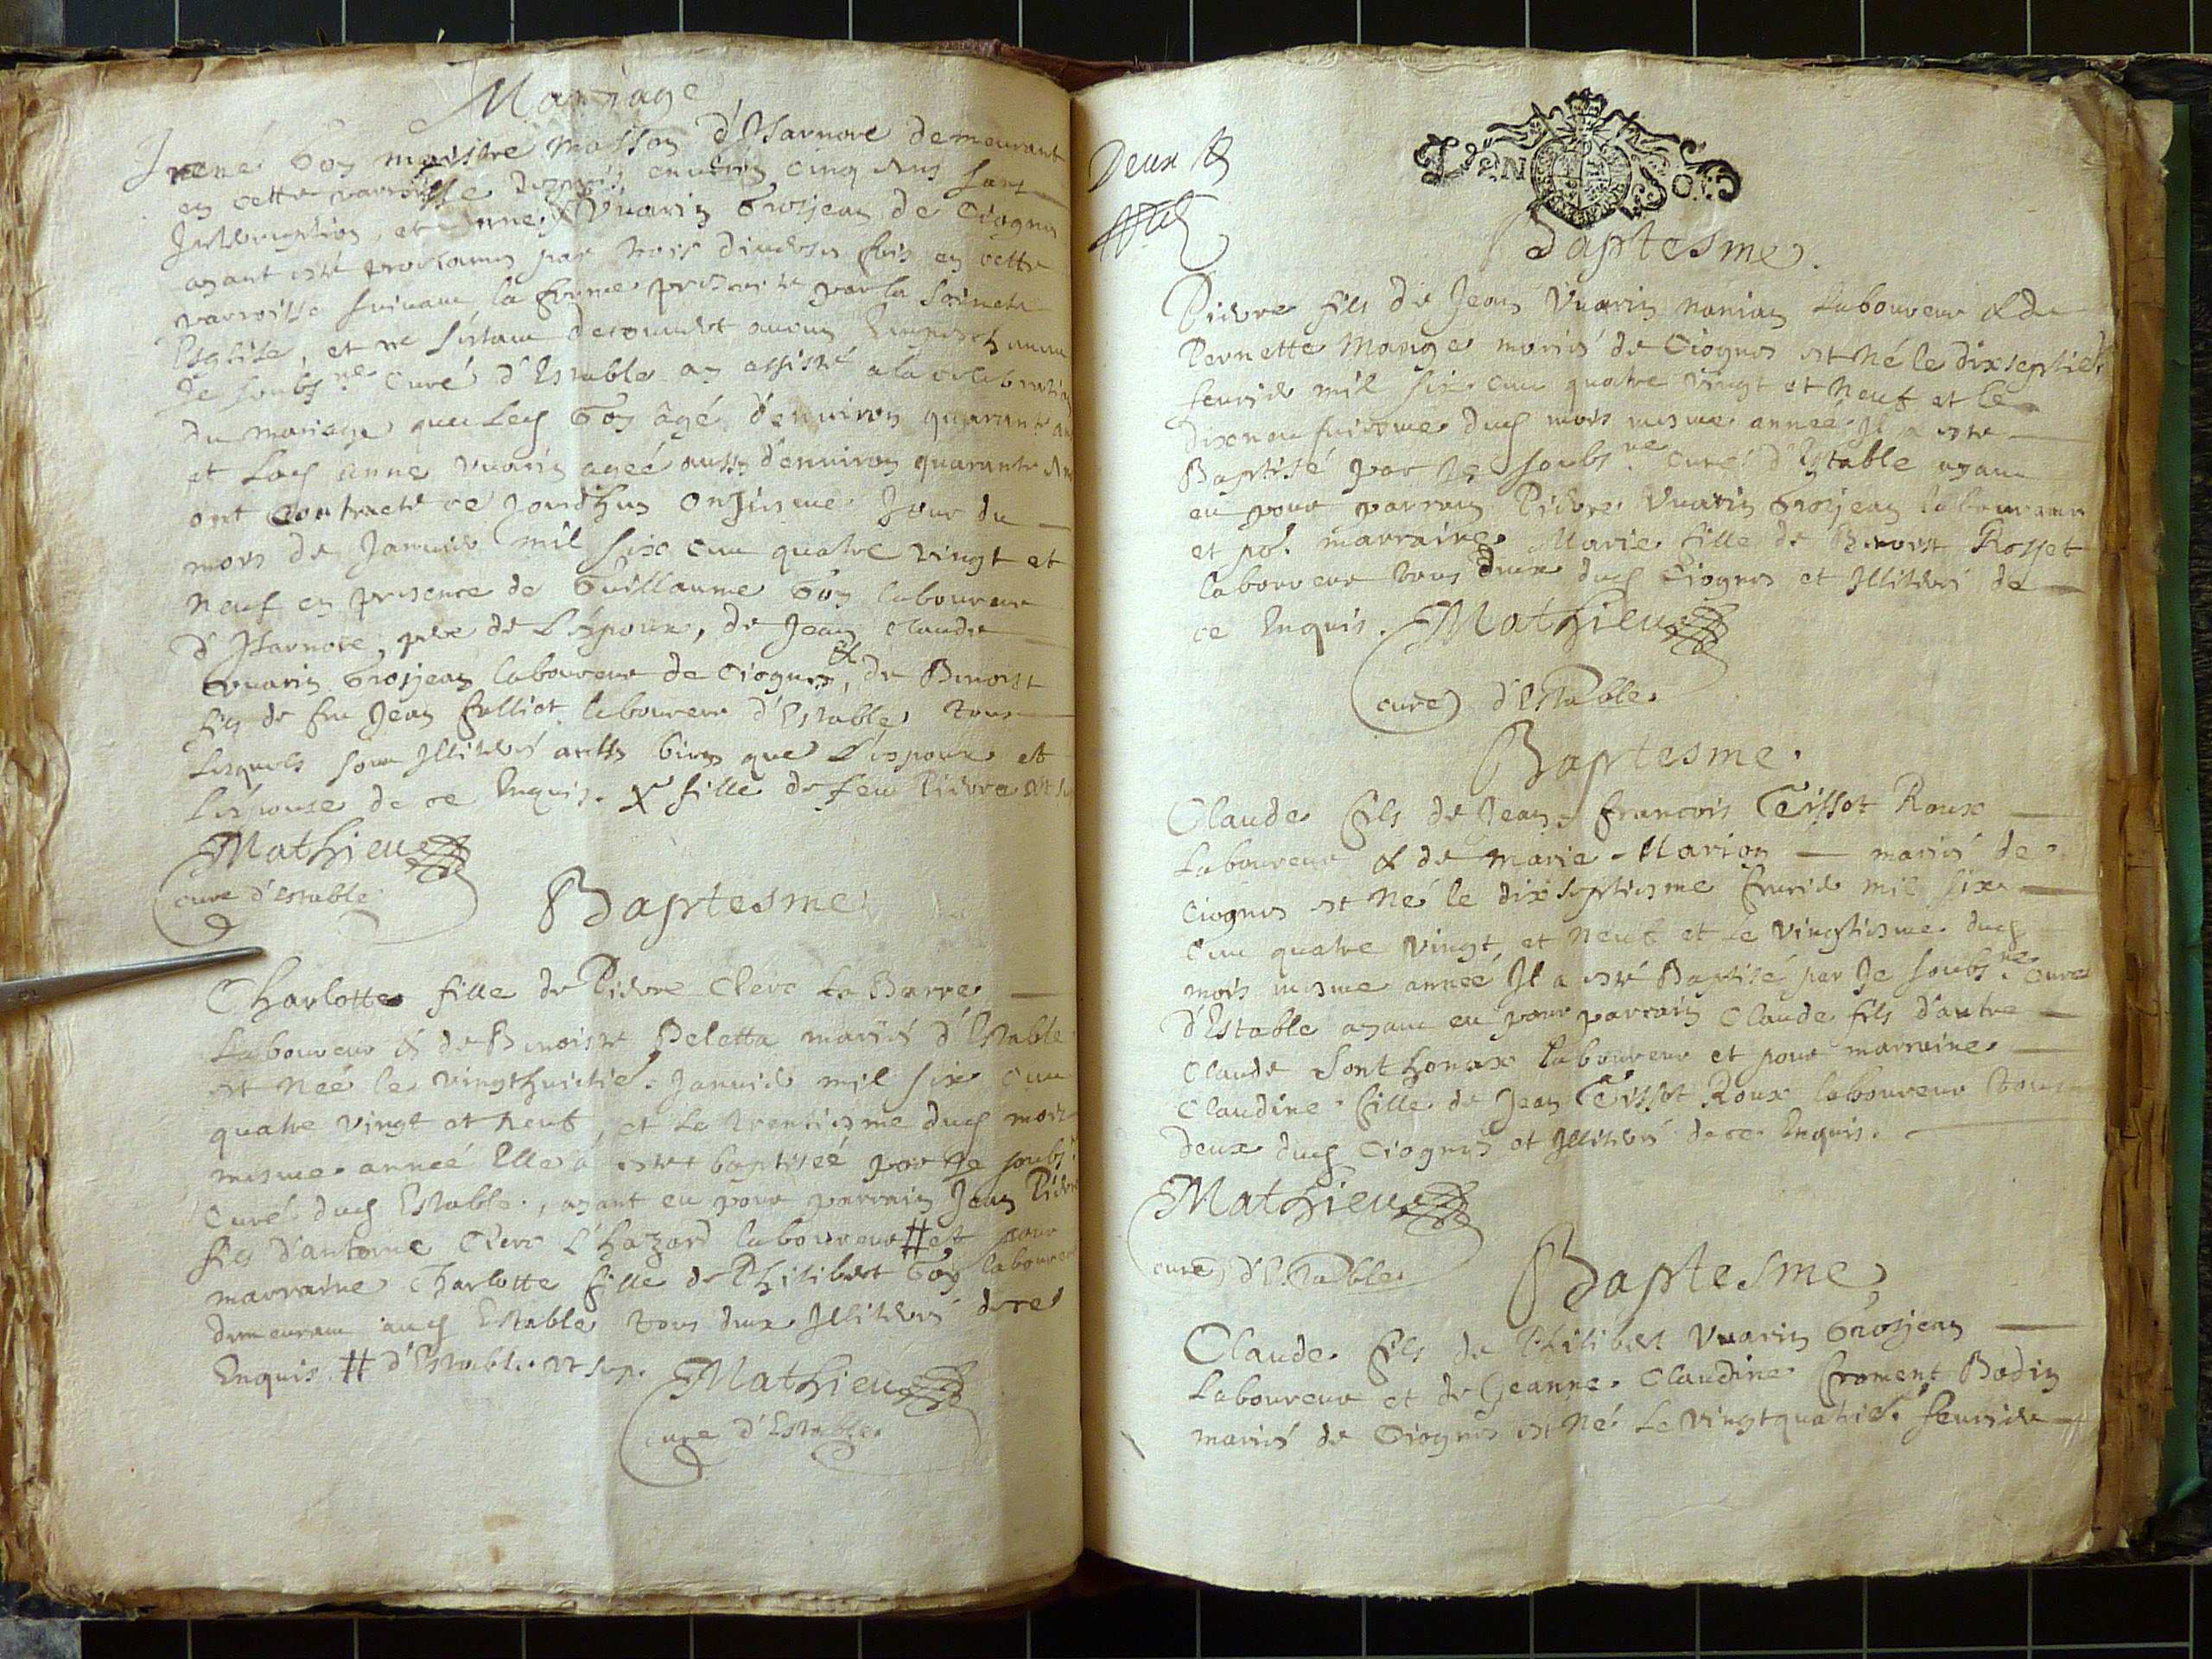 Mariage
Irené Goy maistre masson d'Isarnore demeurant
en cette parroisse depuis environ cinq Ans sans
Interruption, et Anne X Vuarin Grosjean de Ciognes
ayant esté proclamés par trois diverses fois en cette
parroisse suivant la forme prescrite par la saincte
Esglise, et ne s'estant decouvert aucun Empeschement
Je soubs.né Curé d'Estable ay assisté a la celebration
du mariage que led Goy âgé d'environ quarante ans
et lad Anne Vuarin ageé aussy d'environ quarante Ans
ont Contracté ce jourdhuy Onziesme Jour du
mois de Janvier mil six cent quatre vingt et
Neuf en presence de Guillaume Goy laboureur
d'Isarnore, pere de L'époux, de Jean Claude
Vuarin Grosjean laboureur de Ciognes, & de Benoist
fils de feu Jean Falliet laboureur d'Estables tous
Lesquels sont Illiterés aussy bien que L'espoux et
L'espouse de ce Enquis. X fille de feu Pierre
Mathieu
curé d'Estable
Baptesme
Charlotte fille de Pierre Clerc La Barre
Laboureur & de Benoiste Peletta mariés d'Estable
est Neé le vingthuictie. Janvier mil six cent
quatre vingt et neuf, et Le trentiesme dud mois
mesme anneé Elle a esté baptiseé par Je soubs.
Curé dud Estable, ayant eu pour parrain Jean Pierre
fils d'antoine Clerc L'hazard laboureur # et pour
marraine Charlotte fille de Philibert Goy laboureur
demeurant aud Estable tous deux Illiterés de ce
Enquis. # d'Estable
Mathieu
curé d'Estable
Deux s
GEN SOLS
Baptesme.
Pierre fils de Jean Vuarin nanian Laboureur & de
Pernette Mange mariés de Ciognes est Né le dixseptie.
fevrier mil six cent quatre vingt et Neuf et le
dixneufviesme dud mois mesme anneé Il a esté
Baptisé par Je soubs.né curé d'Estable ayant
eu pour parrain Pierre Vuarin Grosjean laboureur
et po.r marraine Marie fille de Benoist Rosset
laboureur tous deux dud Ciognes et Illiterés de
ce Enquis. Mathieu
curé d'Estable
Baptesme.
Claude fils de Jean François Tissot Roux
Laboureur & de Marie Marion mariés de
Ciognes est Né le dixseptiesme fevrier mil six
cent quatre vingt et Neuf et le vingtiesme dud
mois mesme anneé Il a esté Baptisé par Je soubs.né Curé
d'Estable ayant eu pour parrain Claude fils d'autre
Claude Sonthonax laboureur et pour marraine
Claudine fille de Jean Tissot Roux laboureur tous
deux dud Ciognes et Illiterés de ce Enquis.
Mathieu
curé d'Estable
Baptesme
Claude fils de Philibert Vuarin Grosjean
Laboureur et de Jeanne Claudine Froment Bodin
mariés de Ciognes est Né Le vingtquatrie. fevrier